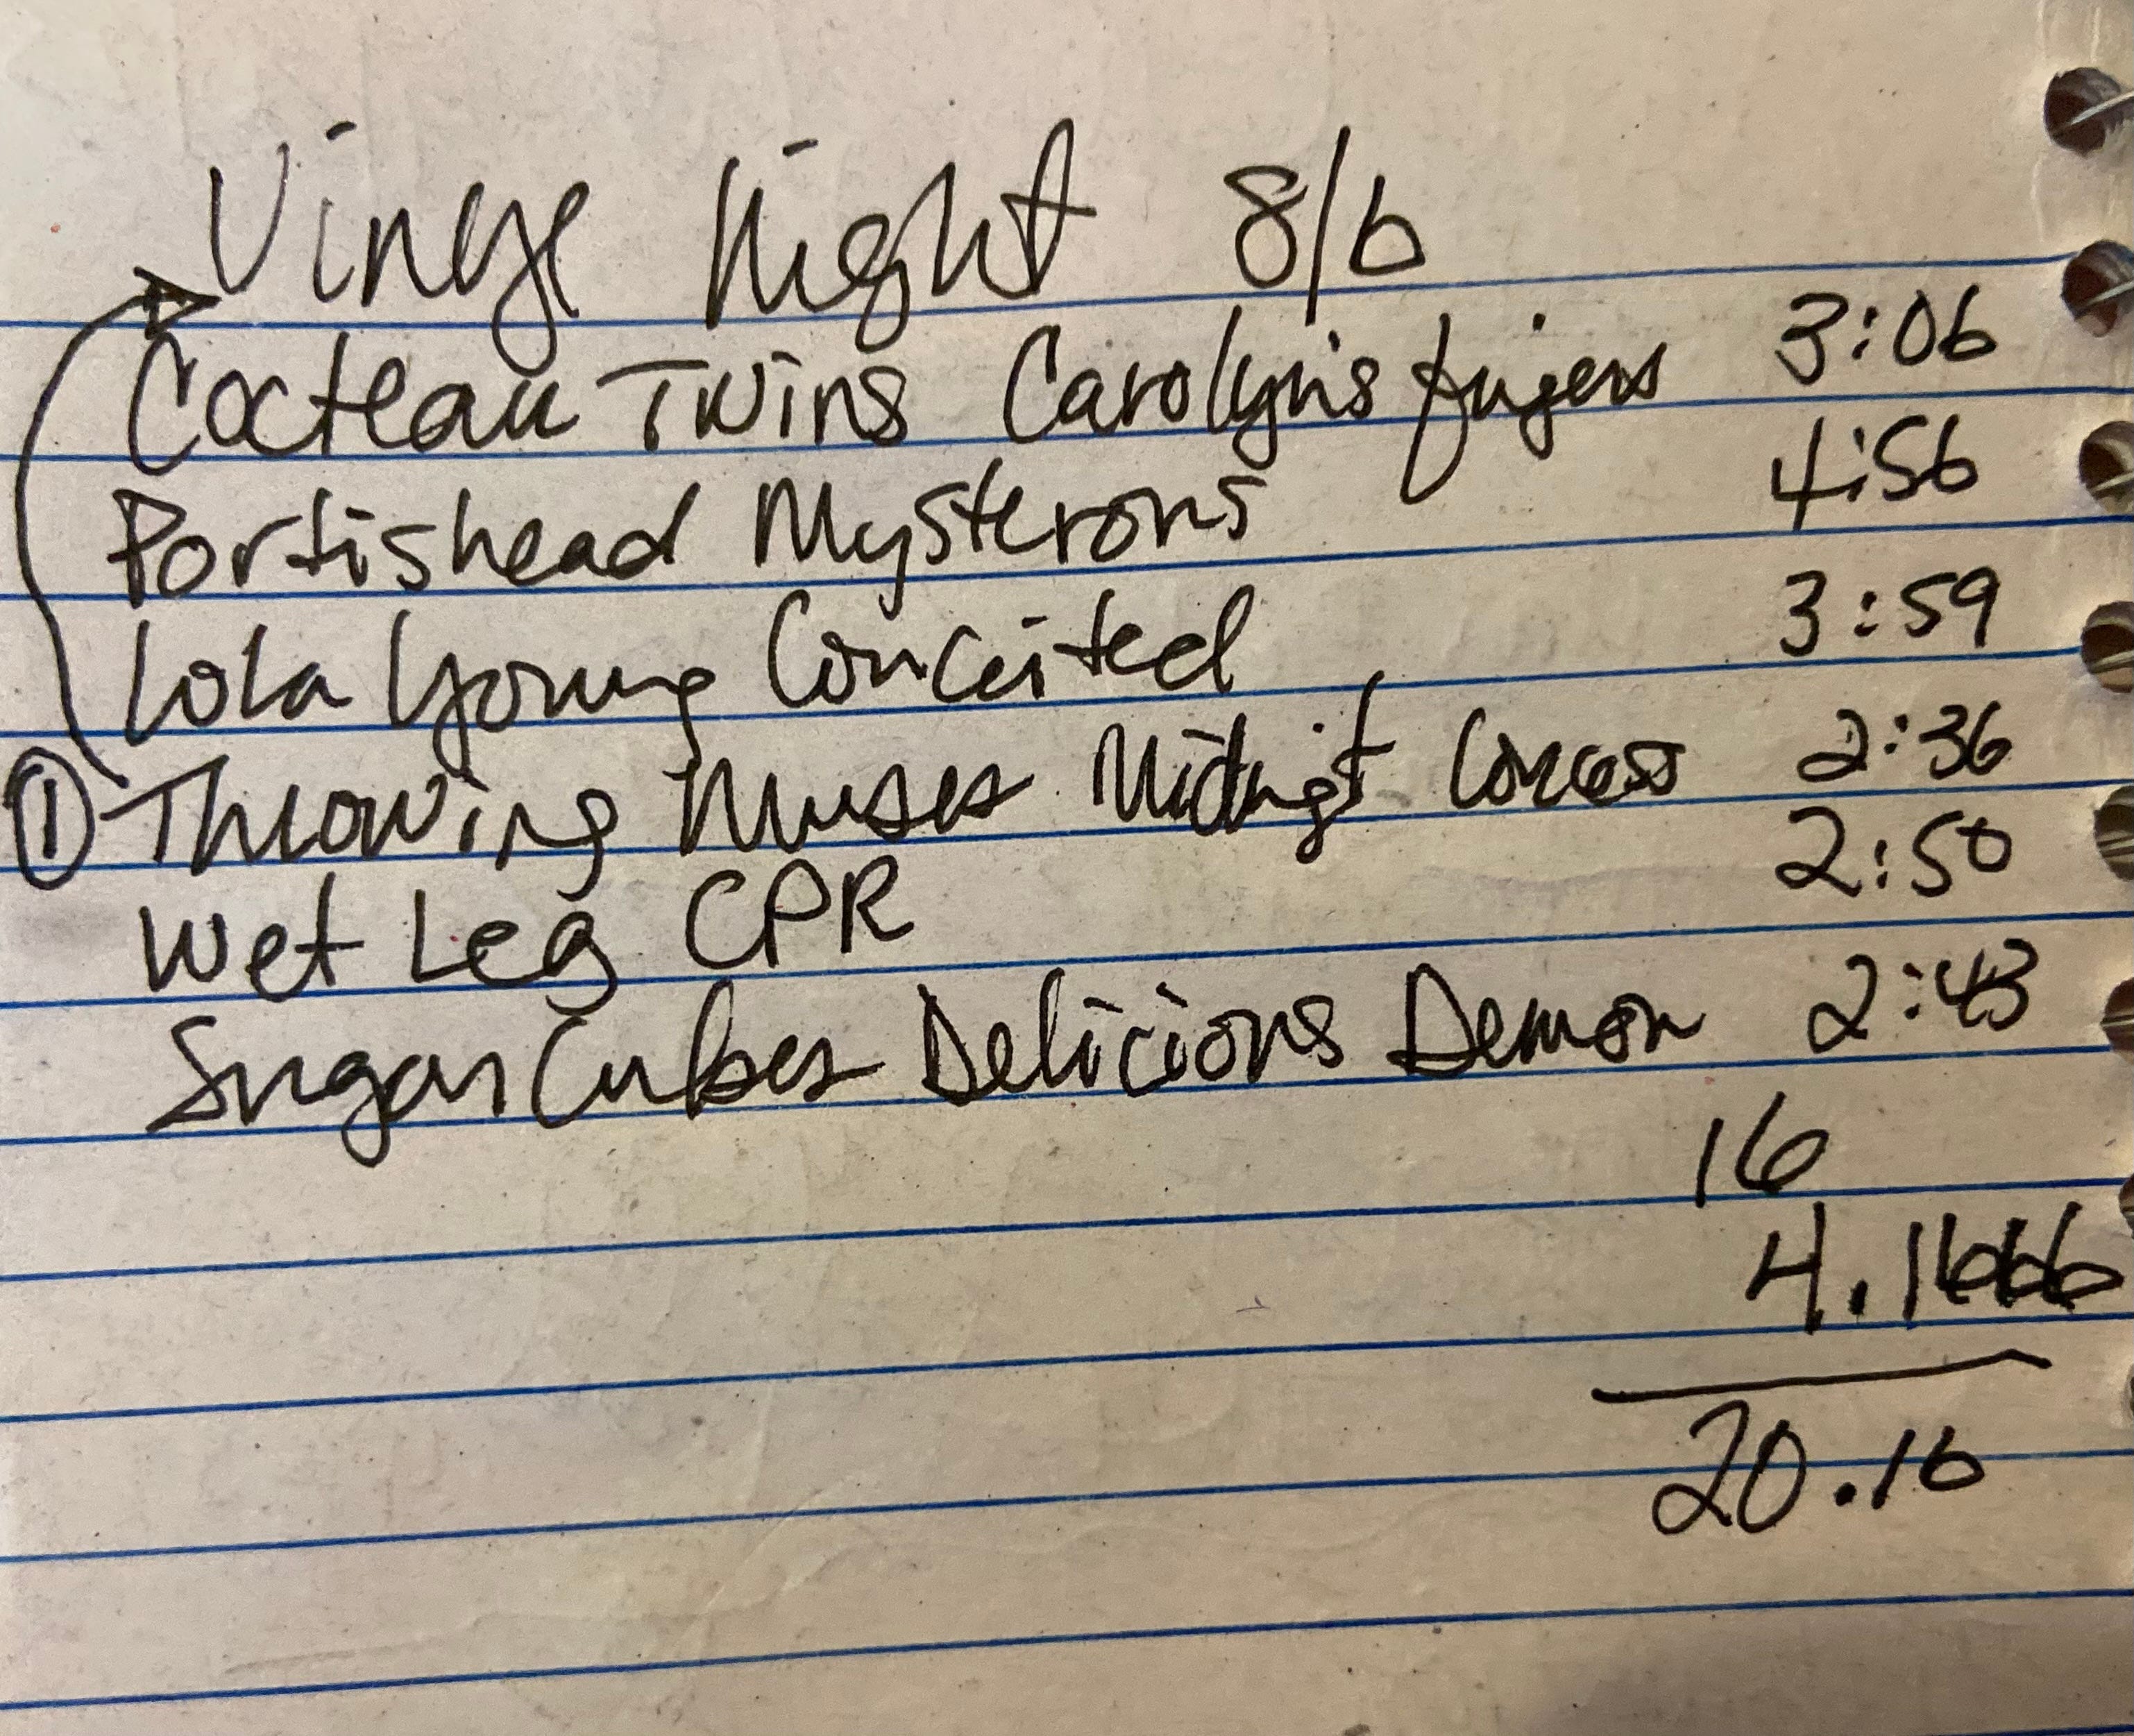 Vinyl Night 8/6
Cocteau Twins Carolyn's fingers 3:06
Portishead Mysterons 4:56
Lola Young Conceited 3:59
① Throwing Muses 2:36
Wet Leg CPR 2:50
SugarCubes Delicious Demon 2:43
16
4.1666
20.16